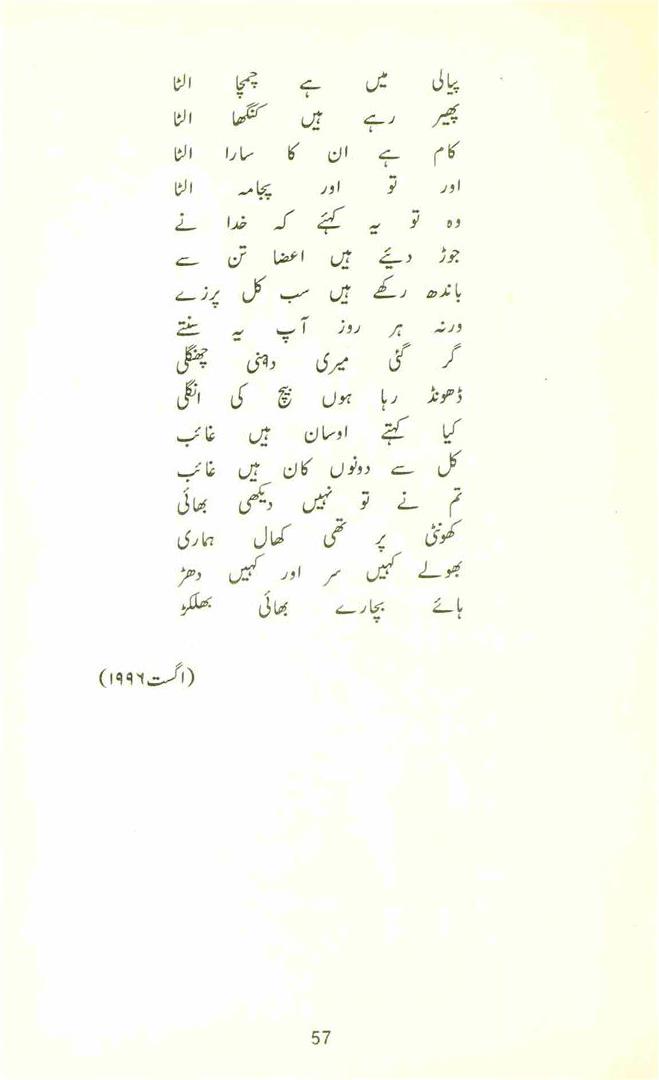 پیالی میں ہے چمچا الٹا
پھیر رہے ہیں کنگھا الٹا
کام ہے ان کا سارا الٹا
اور تو اور پجامہ الٹا
وہ تو یہ کہئے کہ خدا نے
جوڑ دیئے ہیں اعضا تن سے
باندھ رکھے ہیں سب کل پرزے
ورنہ ہر روز آپ یہ سنتے
گر گئی میری دہنی چھنگلی
ڈھونڈ رہا ہوں بیچ کی انگلی
کیا کہتے اوسان ہیں غائب
کل سے دونوں کان ہیں غائب
تم نے تو نہیں دیکھی بھائی
کھونٹی پر تھی کھال ہماری
بھولے کہیں سر اور کہیں دھڑ
ہائے بچارے بھائی بھلکڑ
(اگست ۱۹۹۶)
57